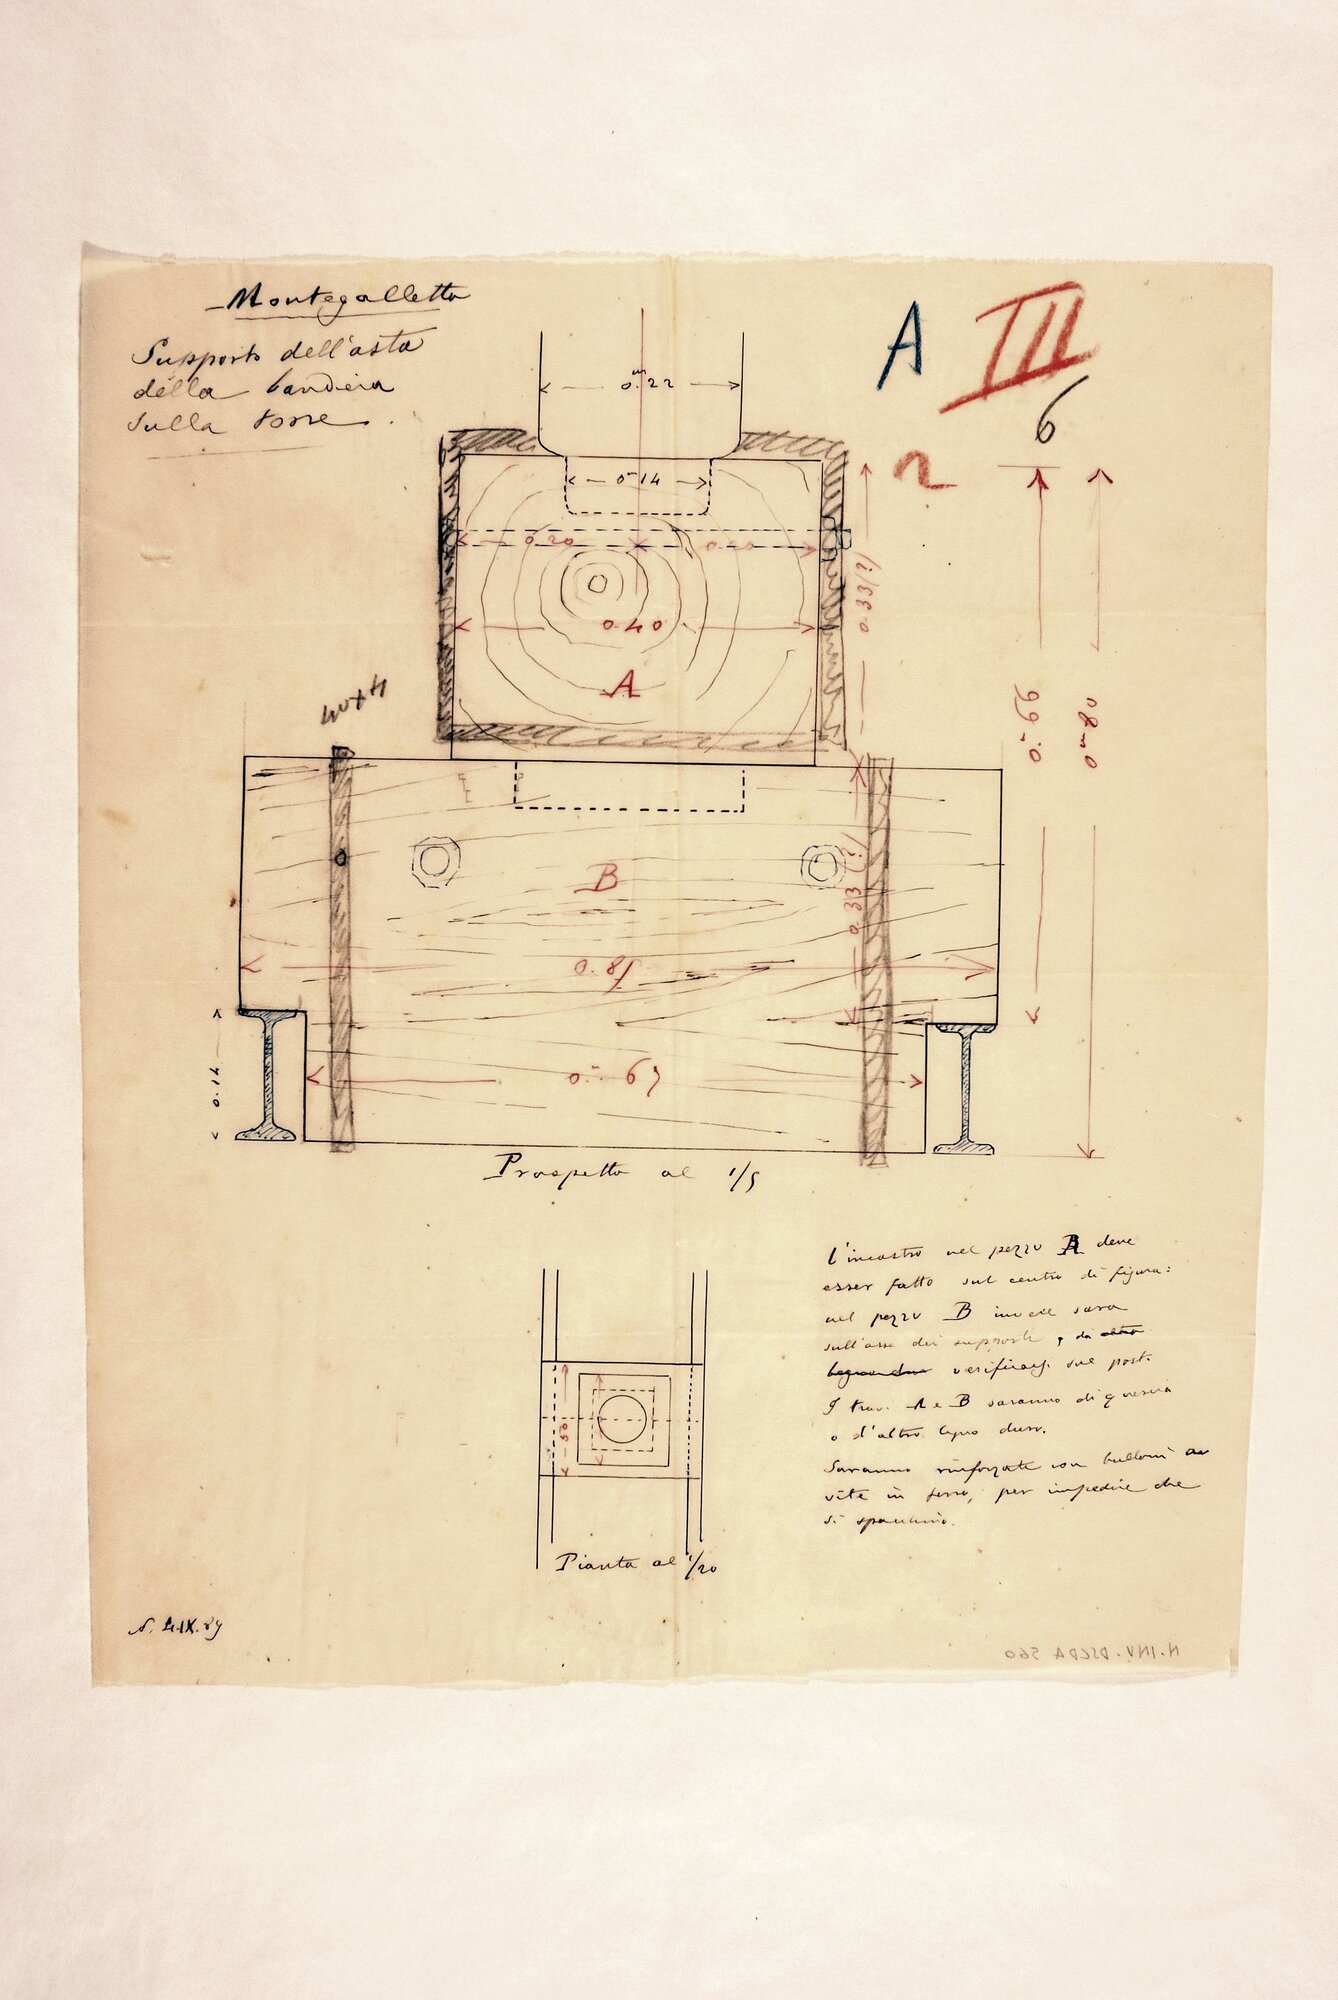 Montegalletto
Supporto dell'asta
della bandiera
sulla torre.
A III
6
2
0.m22
0.m14
0.20 0.20
0.40
A
0.33(?)
0.m66
0.m80
40x4
B
0.33(?)
0.85
0.14
0.m67
Prospetto al 1/5
l'incastro nel pezzo A deve
esser fatto sul centro di figura:
nel pezzo B invece sarà
sull'asse dei supporti, da
verificarsi sul posto.
I travi A e B saranno di quercia
o d'altro legno duro.
Saranno rinforzate con bulloni a
vite in ferro, per impedire che
si spacchino.
Pianta al 1/20
4.IX.89
N. INV. DSCDA 560